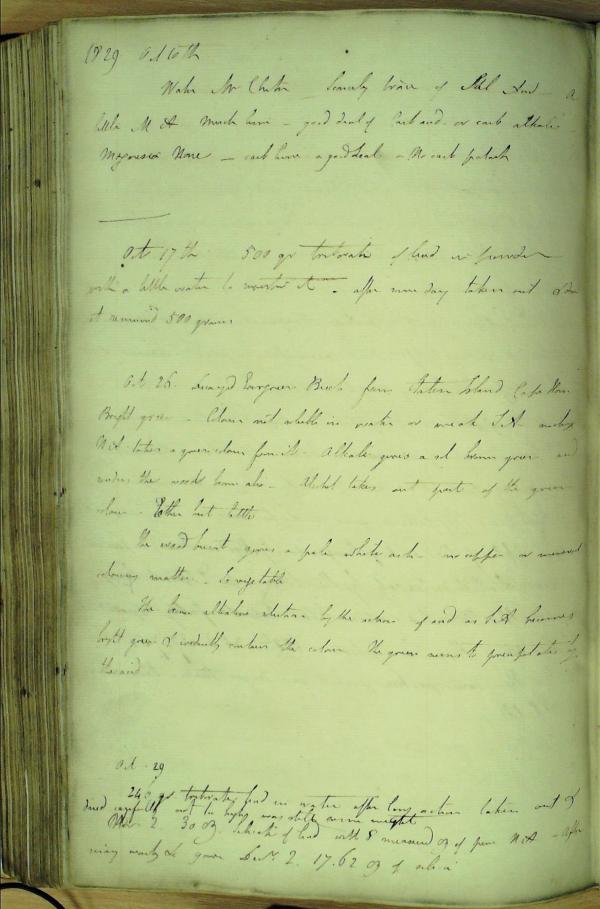 1829 Oct 16th
Water Mr Scarcely trace of Sul Acid - a
little M A Much lime - good deal of Carb acid - or carb alkali -
Magnesia None - carb lime a good deal - No carb potash
Oct 17th 500 gr triborate of lead in powder
with a little water to - after nine days taken out & dried
it 500 grains
Oct 26. Decayed Evergreen Beech from Staten Island Cape Horn
Bright green - Colour not soluble in water or weak S A
N A takes a green colour from it - Alkali gives a brown green and
renders the wood brown also - Alcohol takes out part of the green
colour - Ether but little
The wood burnt gives a pale white ash - no copper or mineral
colouring matter - So vegetable
The brown alkaline solution by the action of acid as S A becomes
bright green & instantly the colour The green seems to precipitate by
the acid
Oct 29
240 gr triborate lead in water after long action taken out &
dried carefully not too highly was still same weight
Nov 2 30 oz of lead with 8 measured oz of pure N A - After
washing &c gave Decr 2. 17.62 oz of silica